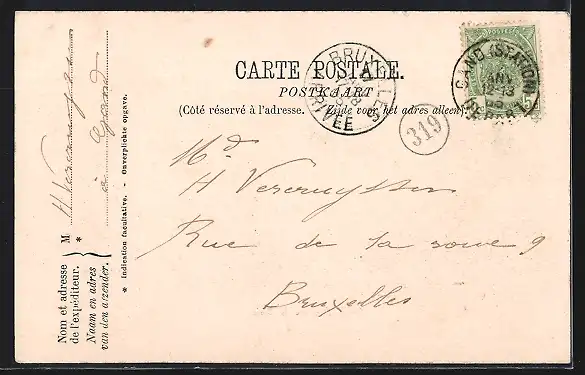 CARTE POSTALE.
POSTKAART
(Côté réservé à l'adresse. Zijde voor het adres alleen)
BRUXELLES
ARRIVÉE
GAND (STATION)
JANV
12-13
05
5
319
Md
H Vercruyssen
Rue de la roue 9
Bruxelles
Nom et adresse
de l'expéditeur.
Naam en adres
van den afzender.
M
*
H
à Gand
* Indication facultative. - Onverplichte opgave.